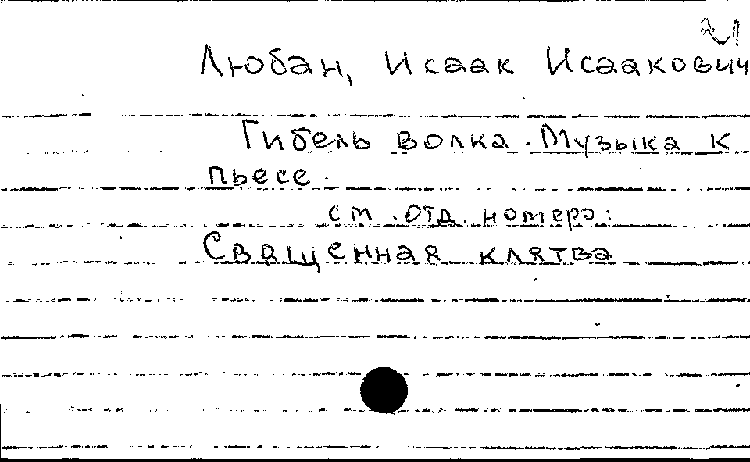 Любан, Исаак Исаакович
Гибель волка. Музыка к
пьесе.
см. отд. номера:
Священная клятва